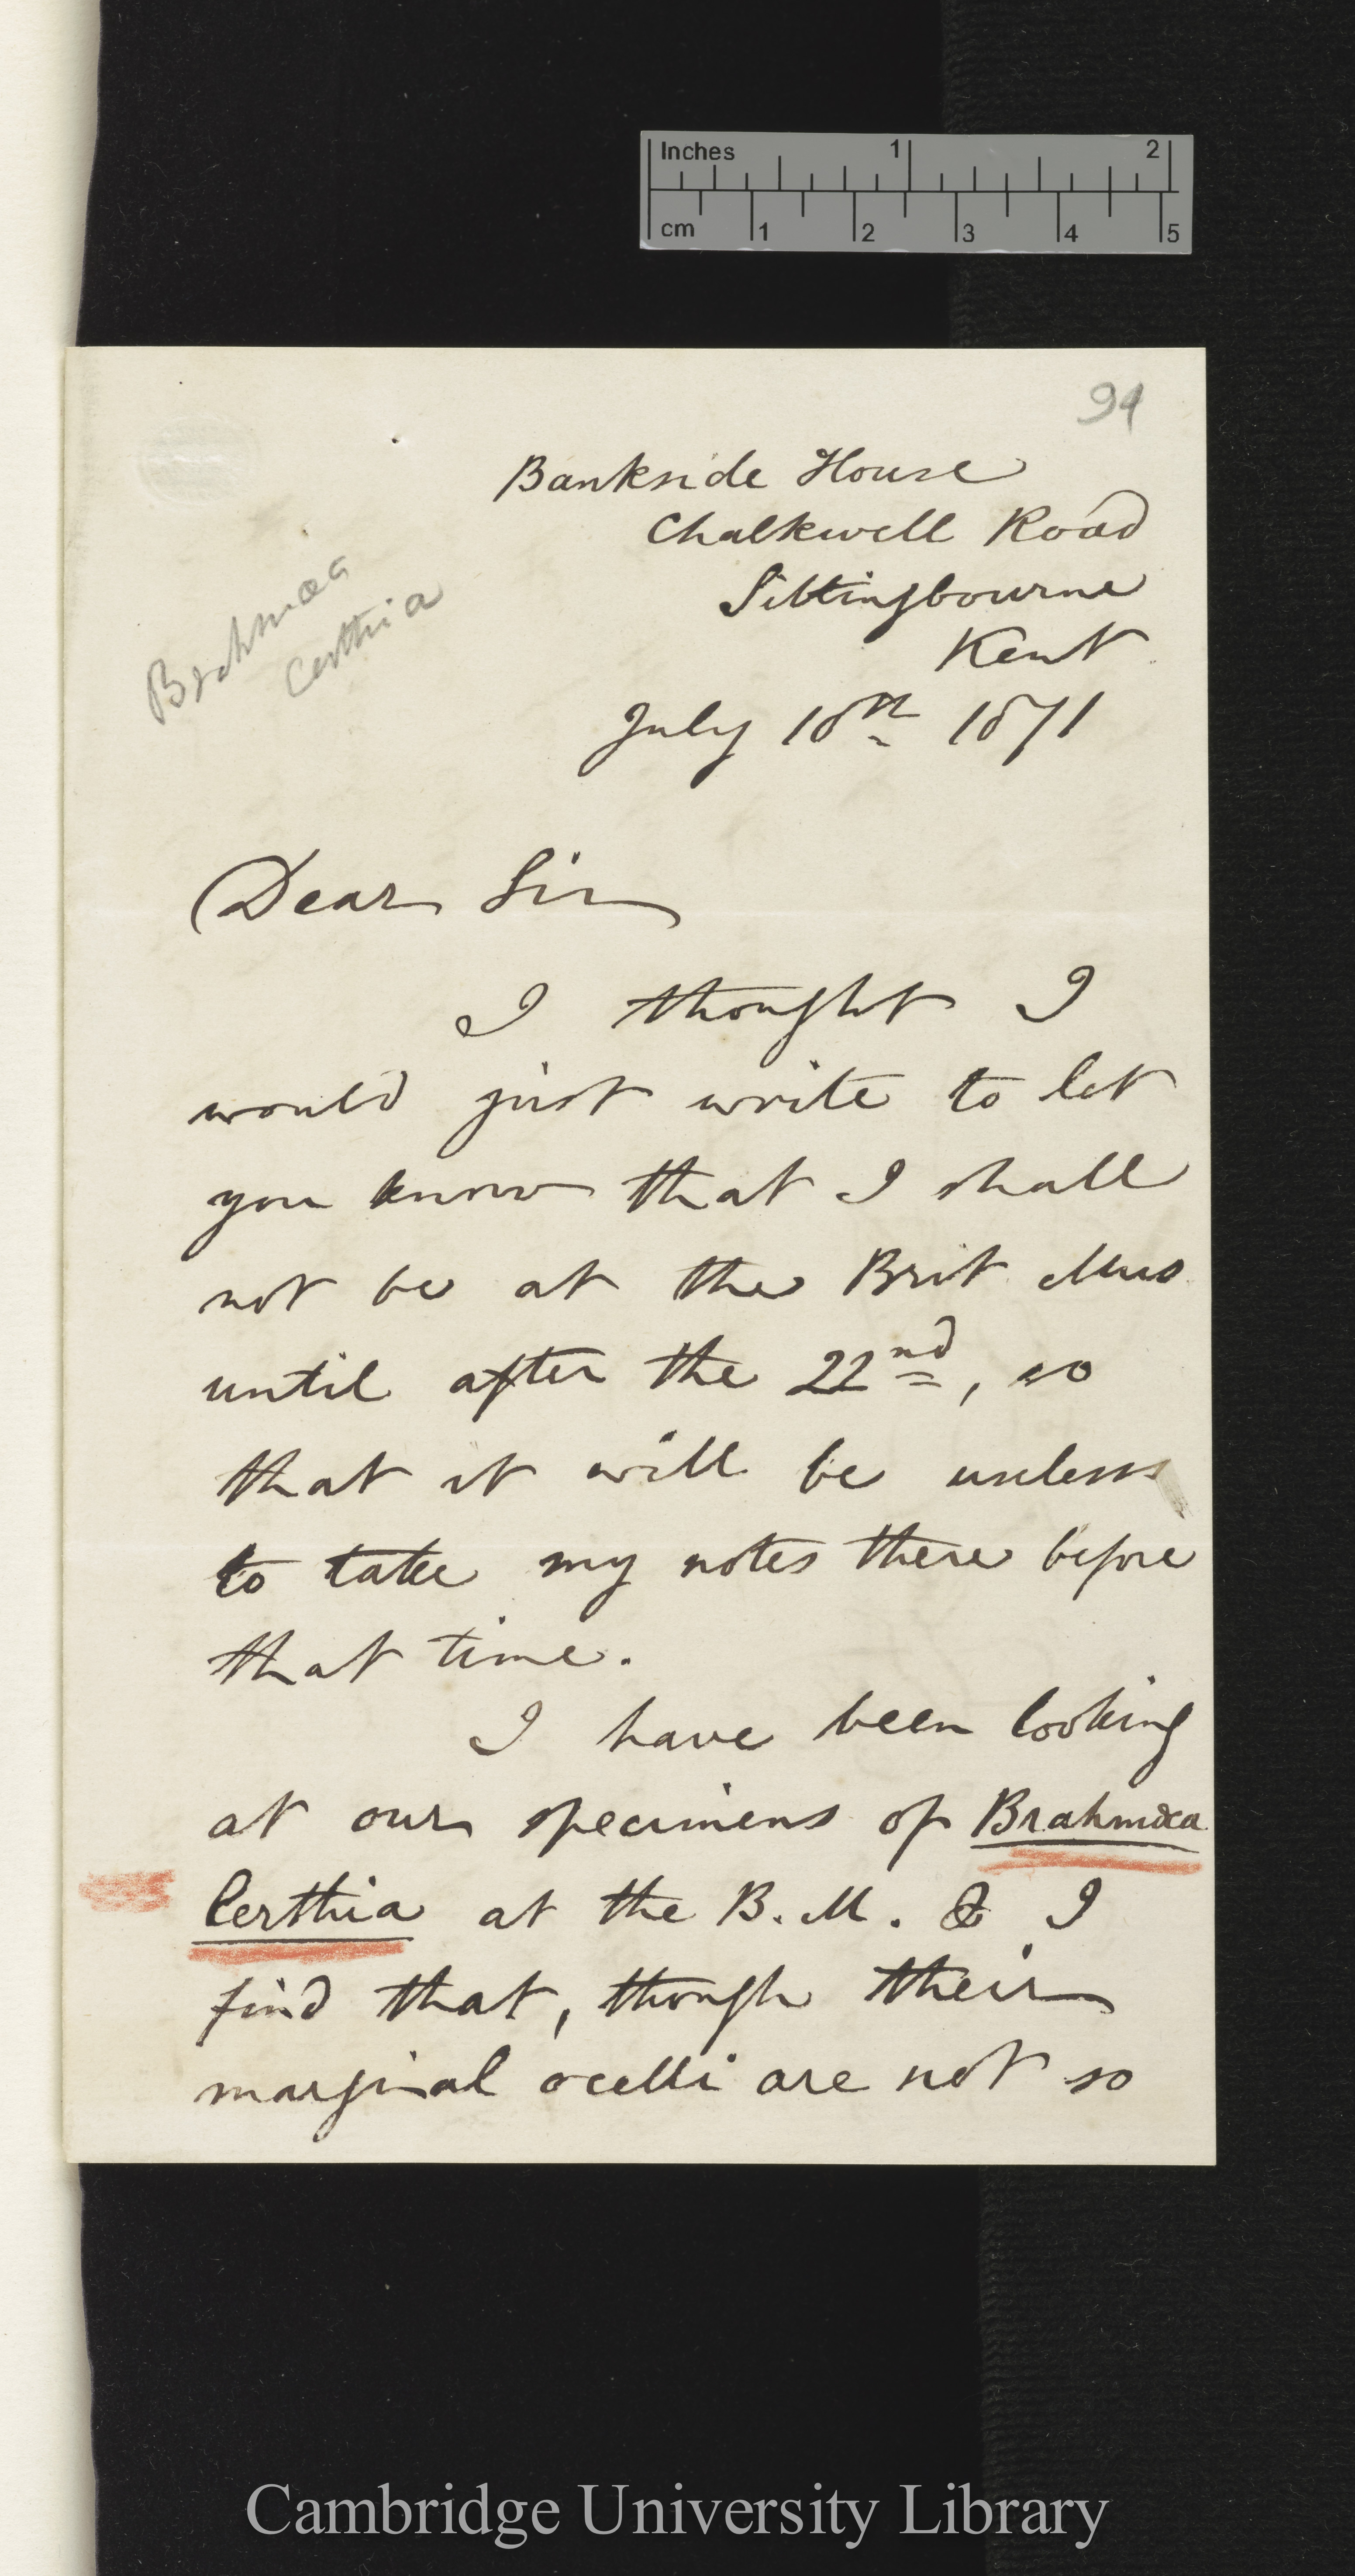 Inches 1 2
cm 1 2 3 4 5
Bankside House
Chalkwell Road
Sittingbourne
Kent
Brahmæa
Certhia
July 18th 1871
Dear Sir
I thought I
would just write to let
you know that I shall
not be at the Brit Mus
until after the 22nd, so
that it will be useless
to take my notes there before
that time.
I have been looking
at our specimens of Brahmæa
Certhia at the B. M. & I
find that, though their
marginal ocelli are not so
Cambridge University Library